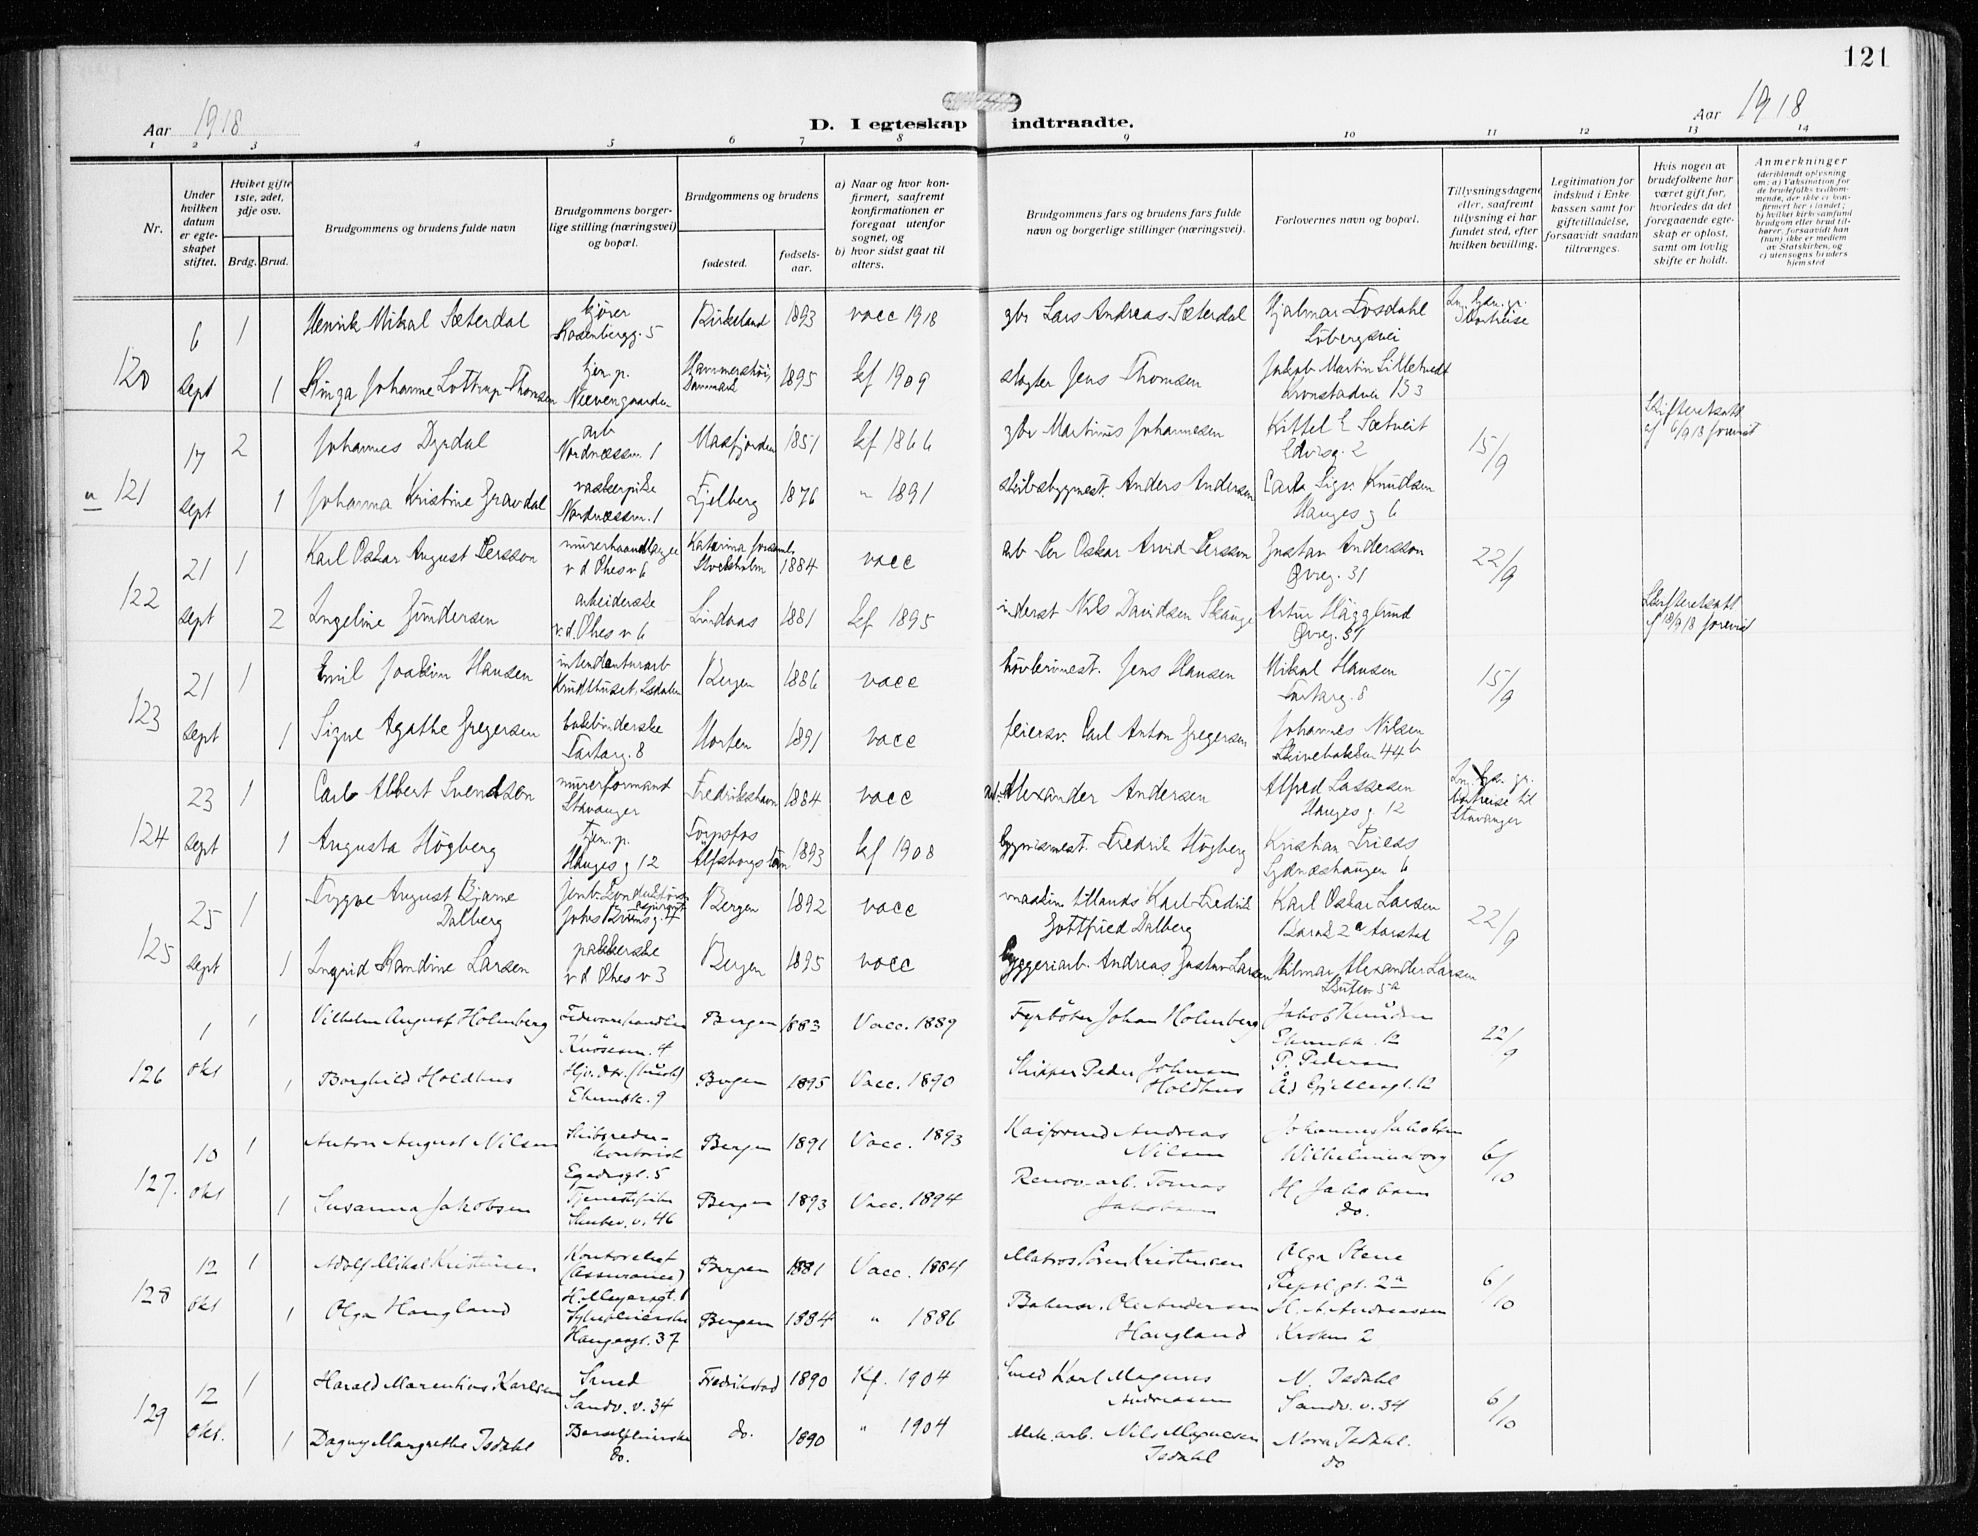 121
Aar 1918
D. I egteskap indtraadte.
Aar 1918
1 2 3 4 5 6 7 8 9 10 11 12 13 14
Nr.
Under hvilken datum er egteskapet stiftet.
Hviket gifte 1ste, 2det, 3dje osv.
Brdg. Brud.
Brudgommens og brudens fulde navn
Brudgommens borgerlige stilling (næringsvei) og bopæl.
Brudgommens og brudens
fødested.
fødselsaar.
a) Naar og hvor konfirmert, saafremt konfirmationen er foregaat utenfor sognet, og
b) hvor sidst gaat til alters.
Brudgommens fars og brudens fars fulde navn og borgerlige stillinger (næringsvei).
Forlovernes navn og bopæl.
Tillysningsdagene eller, saafremt tillysning ei har fundet sted, efter hvilken bevilling.
Legitimation for indskud i Enkekassen samt for giftetilladelse, forsaavidt saadan tiltrænges.
Hvis nogen av brudefolkene har været gift før, hvorledes da det foregaaende egteskap er opløst, samt om lovlig skifte er holdt.
Anmerkninger
(deriblandt oplysning om: a) Vaksination for de brudefolks vedkommende, der ikke er konfirmert her i landet; b) hvilket kirkesamfund brudgom eller brud tilhører, forsaavidt han (hun) ikke er medlem av Statskirken, og c) utensogns bruders hjemsted
120
6 1 Henrik Mikal Sæterdal kjører 5 Birkeland 1893 vacc 1918 gbr Lars Andreas Sæterdal Hjalmar Fosdahl
Løbergsvei
sept 1 Johanne Lottrup-Thomsen tjen.p. Danmark 1895 kf 1909 slagter Jens Thomsen Jakob Martin
Kronstadvei 133
121
17 2 Johannes Dyrdal arb Masfjorden 1851 kf 1866 gbr Martinus Johannesen Kittel E Sætveit 15/9 Skifteretsatt
Nordnæssm. 1 2 af 6/9 18 forevist
sept 1 Johanna Kristine Gravdal vaskerpike Fjelberg 1876 " 1891 skibsbygmest. Anders Andersen Sigv. Knudsen
Nordnæssm. 1 Hauges g 6
122
21 1 Karl Oskar August Persson Katarina forsaml. vacc arb Per Oskar Arvid Persson Gustav Andersson 22/9
v d Ohes v 6 Stockholm 1884 Øvreg. 31
sept 2 Ingeline Gundersen arbeiderske Lindaas 1881 kf 1895 inderst Nils Davidsen Skauge Artur Hägglund Skifteretsatt
v.d. Ohes v 6 Øvreg. 31 af 18/9 18 forevist
123
21 1 Emil Joakim Hansen intendanturarb Bergen 1886 vacc høvlerimest. Jens Hansen Mikal Hansen 15/9
Krudthuset, Isdalen Tartarg. 8
sept 1 Signe Agathe Gregersen bokbinderske Horten 1891 vacc feiersv. Carl Anton Gregersen Johannes Nilsen
Tartarg. 8 Skivebakken 44 b
124
23 1 Carl Albert Svendsen murerformand Fredrikshavn 1884 vacc arb. Alexander Andersen Alfred Lassesen
Stavanger Hauges g. 12 Stavanger
sept 1 Augusta Högberg tjen.p. 1893 kf 1908 Fredrik Högberg Kristian
Hauges g 12 Sydnæshaugen 6
125
25 1 Trygve August Bjarne Dalberg Bergen 1892 vacc Karl Fredrik Gottfried Dalberg Karl Oskar Larsen 22/9
Aarstad
sept 1 Ingrid Kandine Larsen pakkerske Bergen 1895 vacc Andreas Gustav Larsen Hilmar Alexander Larsen
v d Ohes v 3
126
1 1 Vilhelm August Holmberg Bergen 1883 Vacc. 1889 Fyrbøter Johan Holmberg Jakob Knudsen 22/9
okt 1 Borghild Holdhus Bergen 1895 Vacc. 1890 Skipper Peder Johnsen Holdhus P. Pedersen
127.
10 1 Anton August Nilsen Bergen 1891 Vacc. 1893 Kaiformd Andreas Nilsen Johannes Jakobsen 6/10
Egedesgt. 5 Wilhelminaborg
okt 1 Susanna Jakobsen Tjenestepike Bergen 1893 Vacc. 1894 Renov.arb. Tomas Jakobsen H Jakobsen
v. 46 do.
128
12 1 Adolf Mikal Kristensen Kontorchef Bergen 1881 Vacc. 1884 Matros Søren Kristensen Olga Stene 6/10
(Assurance)
H. Meyersgt. 1 Repslgt. 2a
okt 1 Olga Haugland Bergen 1884 " 1886 Ole Andersen Haugland H. A. Andreassen
Haugesgt. 37 Kroken 2
129
12 1 Harald Marentius Karlsen Smed Fredrikstad 1890 Kf. 1904 Smed Karl Magnus Andreassen N. Isdahl 6/10
Sandv. v. 34 Sandv. v. 34
okt. 1 Dagny Margrethe Isdahl do. 1890 " 1904 Mek. arb. Nils Magnesen Isdahl Nora Isdahl.
do. do